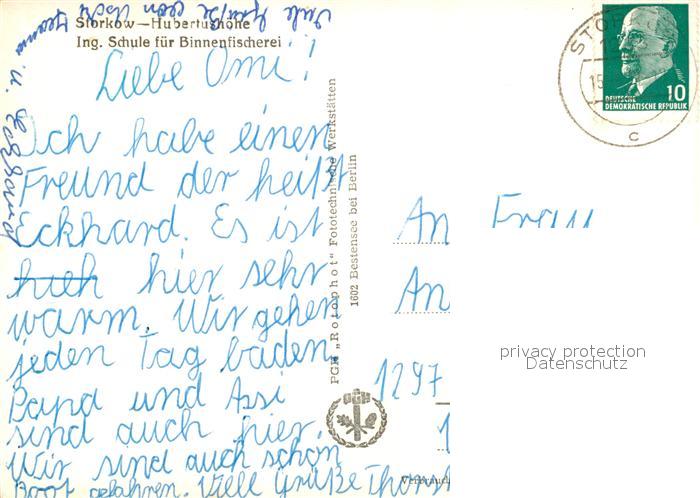 Storkow—Hubertushöhe
Ing. Schule für Binnenfischerei
Liebe Omi!
Ich habe einen
Freund der heißt
Eckhard. Es ist
hier sehr
warm. Wir gehen
jeden Tag baden
Papa und Assi
sind auch hier.
Wir sind auch schon
Boot gefahren. Viell Grüße Thorst
Viele Grüße von
u.
PGH „Rotophot" Fototechnische Werkstätten
1602 Bestensee bei Berlin
STOR
15.
c
10
DEUTSCHE
DEMOKRATISCHE REPUBLIK
An Frau
An
1297
1
privacy protection
Datenschutz